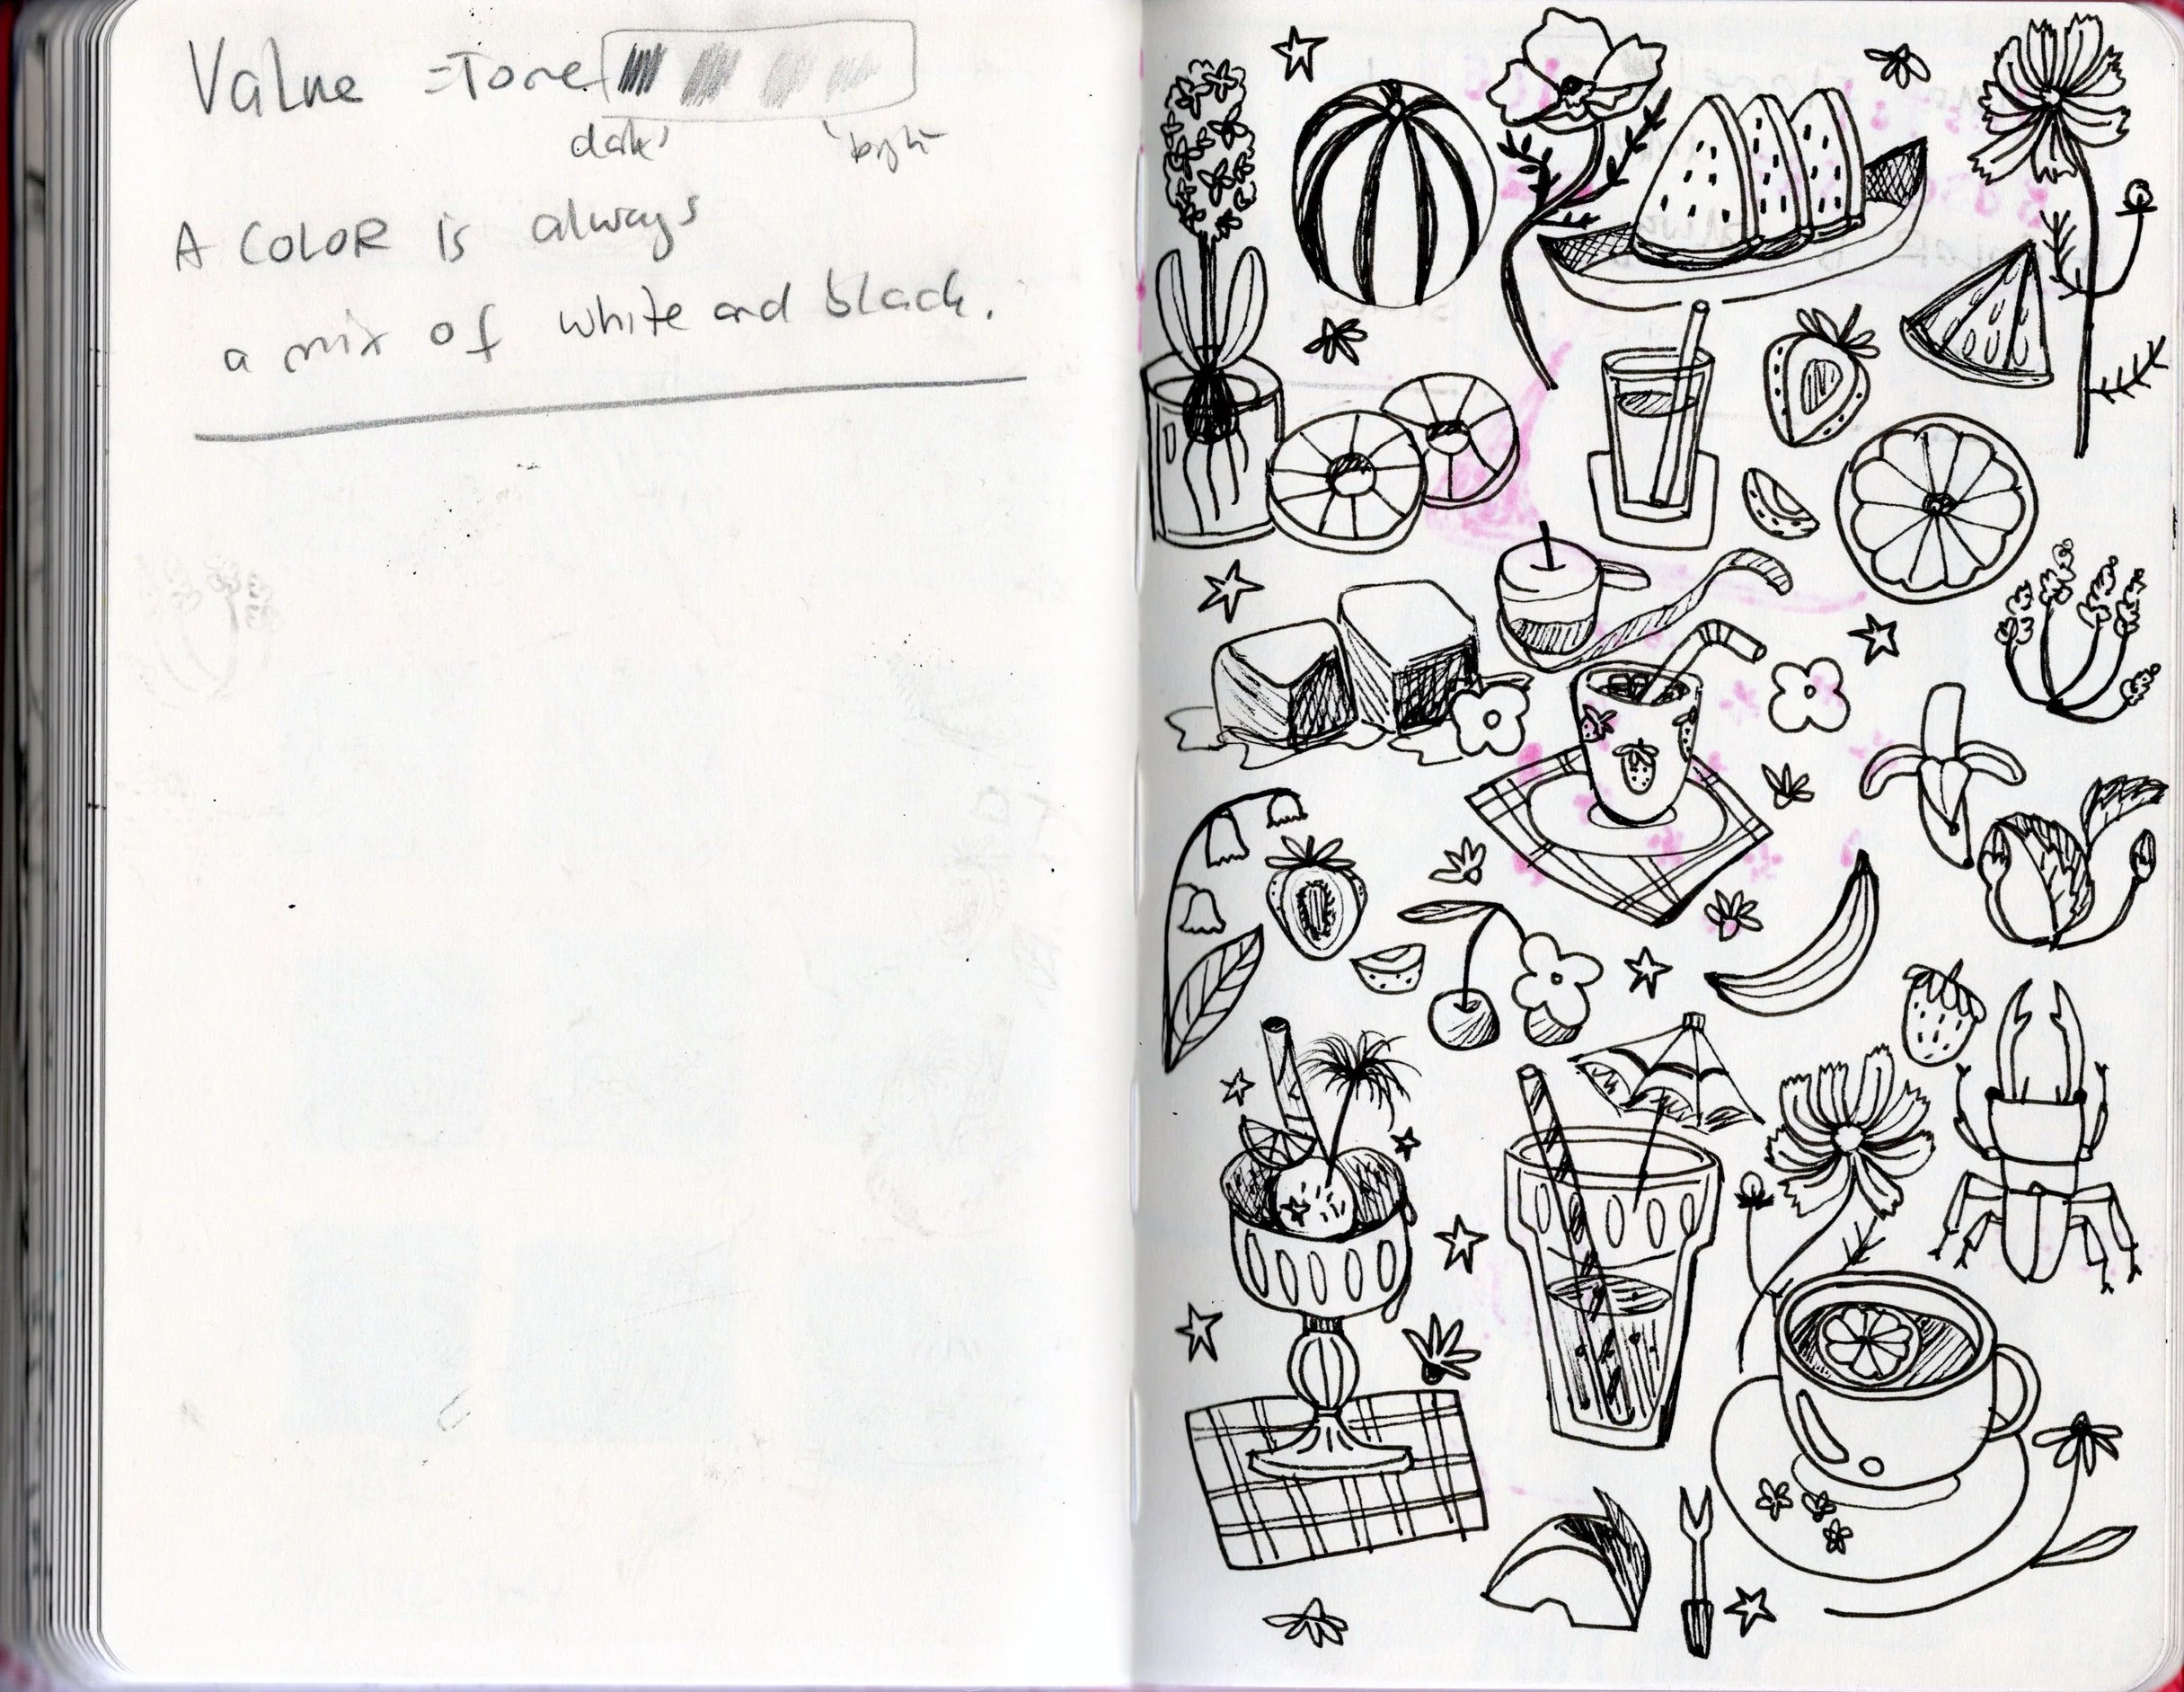 Value = Tone
dark bright
A COLOR is always
a mix of white and black.